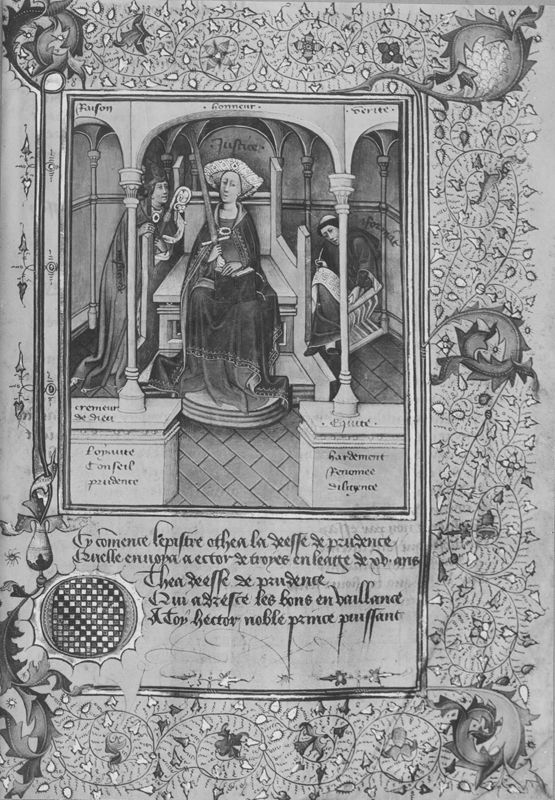 Raison
honneur
verite
Justice
cremeur
de dieu
Equite
Loyaute
Conseil
prudence
hardement
Renomee
diligence
Cy comence lepistre othea la deesse de prudence
Quelle envoya a ector de troyes en leage de xv ans
Othea deesse de prudence
Qui adresce les bons en vaillance
A Toy hector noble prince puissant